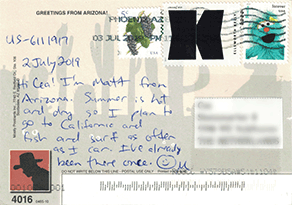 GREETINGS FROM ARIZONA!
PHOENIX AZ
03 JUL 2019 PM
US-6111917
2 July 2019
Hi Cea! I'm Matt from
Arizona. Summer is hot
and dry so I plan to
go to California and
fish and surf as often
as I can. I've already
been there once.
DO NOT WRITE BELOW THIS LINE
POSTAL USE ONLY
4016